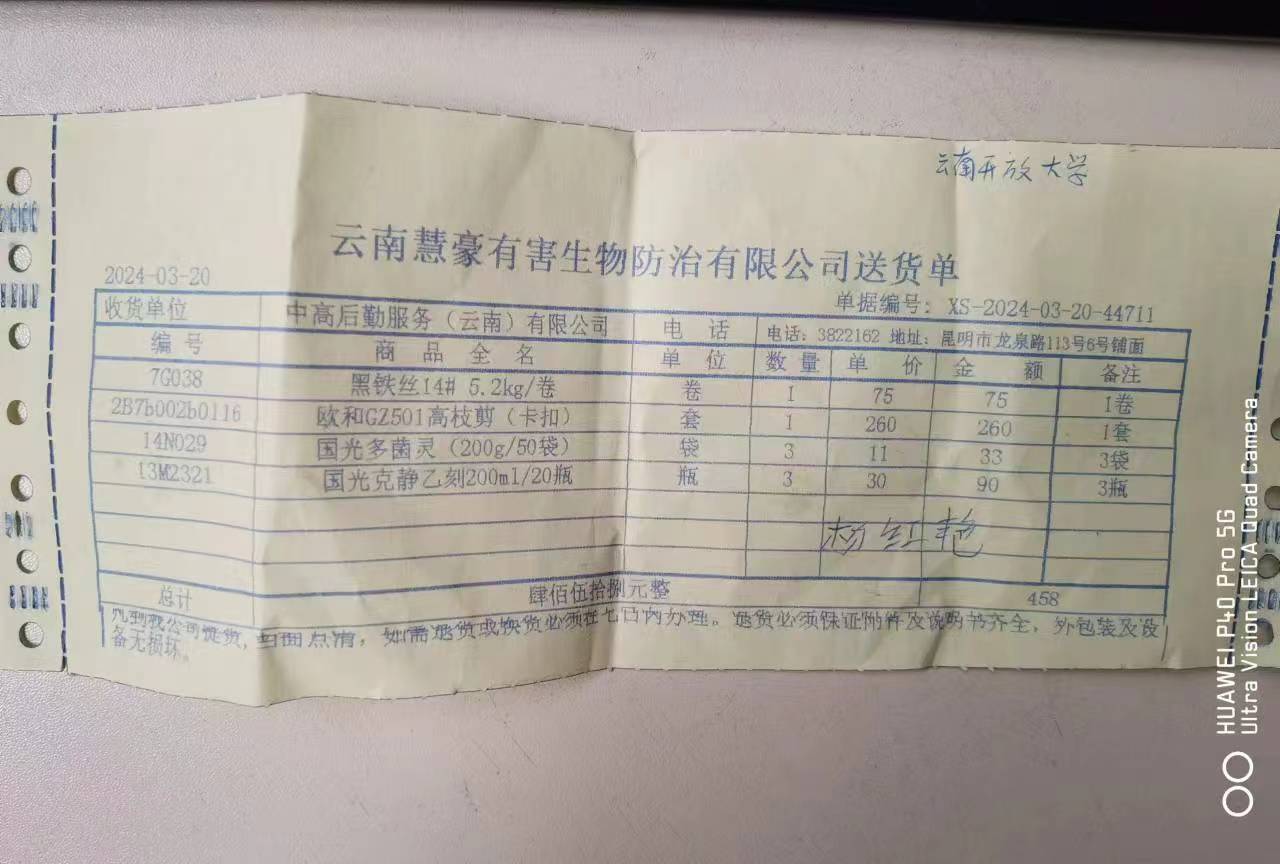 云南开放大学
云南慧豪有害生物防治有限公司送货单
2024-03-20
单据编号: XS-2024-03-20-44711
收货单位 中高后勤服务（云南）有限公司 电 话 电话: 3822162 地址: 昆明市龙泉路113号6号铺面
编 号 商 品 全 名 单 位 数 量 单 价 金 额 备注
7G038 黑铁丝14# 5.2kg/卷 卷 1 75 75 1卷
2B7b002b0116 欧和GZ501高枝剪（卡扣） 套 1 260 260 1套
14N029 国光多菌灵（200g/50袋） 袋 3 11 33 3袋
13M2321 国光克静乙刻200ml/20瓶 瓶 3 30 90 3瓶
杨红艳
总计 肆佰伍拾捌元整 458
凡到我公司提货, 当面点清, 如需退货或换货必须在七日内办理。退货必须保证附件及说明书齐全, 外包装及设
备无损坏。
HUAWEI P40 Pro 5G
Ultra Vision LEICA Quad Camera